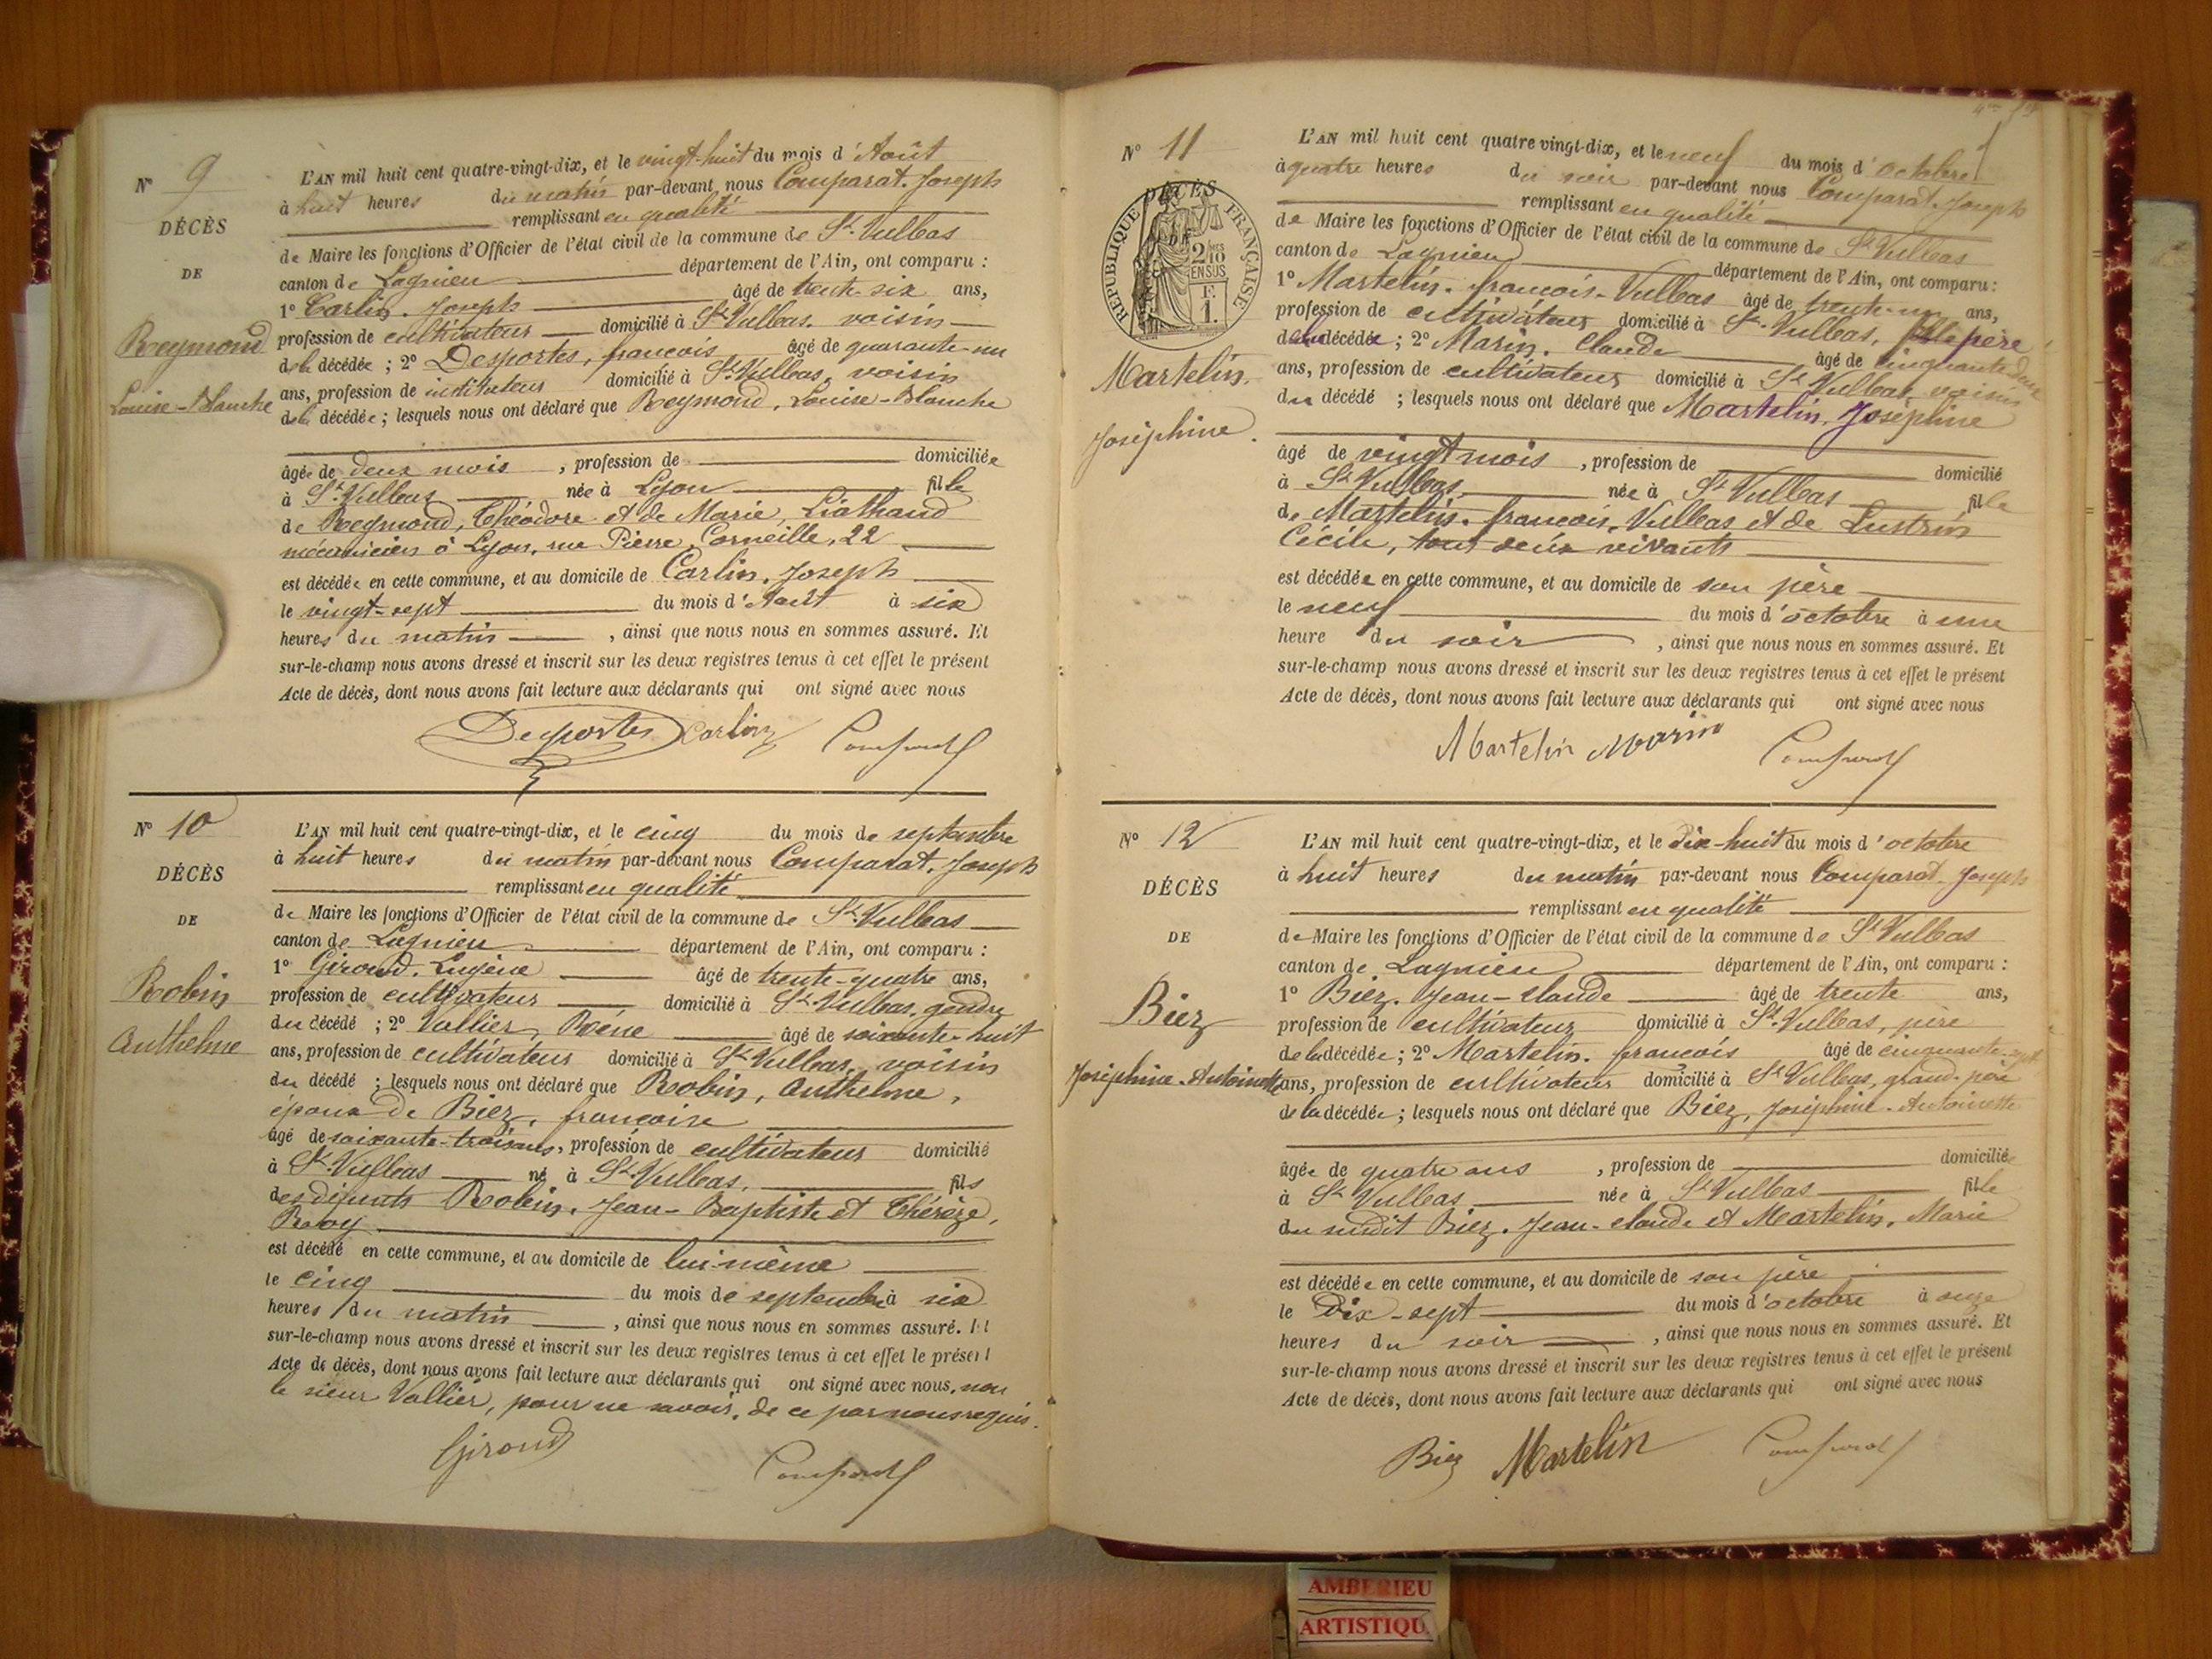 N° 9
DÉCÈS
DE
Reymond
Louise-Blanche
L'AN mil huit cent quatre-vingt-dix, et le vingt-huit du mois d'Août
à huit heures du matin par-devant nous Comparat. Joseph
remplissant en qualité
de Maire les fonctions d'Officier de l'état civil de la commune de St. Vulbas
canton de Lagnieu département de l'Ain, ont comparu :
1° Carlin. Joseph âgé de trente-six ans,
profession de cultivateur domicilié à St. Vulbas. voisin
de la décédée ; 2° Desportes, françois âgé de quarante-un
ans, profession de instituteur domicilié à St. Vulbas, voisin
de la décédée ; lesquels nous ont déclaré que Reymond, Louise-Blanche
âgée de deux mois , profession de domiciliée
à St. Vulbas née à Lyon fille
de Reymond, Théodore et de Marie, Liathaud
mécanicien à Lyon, rue Pierre Corneille, 22
est décédée en cette commune, et au domicile de Carlin, Joseph
le vingt-sept du mois d'Août à six
heures du matin , ainsi que nous nous en sommes assuré. Et
sur-le-champ nous avons dressé et inscrit sur les deux registres tenus à cet effet le présent
Acte de décès, dont nous avons fait lecture aux déclarants qui ont signé avec nous
Desportes Carlin Comparat J
N° 10
DÉCÈS
DE
Robin
Anthelme
L'AN mil huit cent quatre-vingt-dix, et le cinq du mois de septembre
à huit heures du matin par-devant nous Comparat. Joseph
remplissant en qualité
de Maire les fonctions d'Officier de l'état civil de la commune de St. Vulbas
canton de Lagnieu département de l'Ain, ont comparu :
1° Giroud. Eugène âgé de trente-quatre ans,
profession de cultivateur domicilié à St. Vulbas, gendre
du décédé ; 2° Vallier, Réné âgé de soixante-huit
ans, profession de cultivateur domicilié à St. Vulbas, voisin
du décédé ; lesquels nous ont déclaré que Robin, Anthelme,
époux de Biez, françoise
âgé de soixante-trois ans, profession de cultivateur domicilié
à St. Vulbas né à St. Vulbas, fils
des défunts Robin. Jean-Baptiste et Thérèze,
Roy
est décédé en cette commune, et au domicile de lui-même
le cinq du mois de septembre à six
heures du matin , ainsi que nous nous en sommes assuré. Et
sur-le-champ nous avons dressé et inscrit sur les deux registres tenus à cet effet le présent
Acte de décès, dont nous avons fait lecture aux déclarants qui ont signé avec nous, non
le sieur Vallier, pour ne savoir, de ce par nous requis.
Giroud Comparat J
N° 11
RÉPUBLIQUE FRANÇAISE
DÉCÈS
DE
2/10 EN SUS
F. 1.
Martelin.
Joséphine.
L'AN mil huit cent quatre vingt-dix, et le neuf du mois d'octobre
à quatre heures du soir par-devant nous Comparat. Joseph
remplissant en qualité
de Maire les fonctions d'Officier de l'état civil de la commune de St. Vulbas
canton de Lagnieu département de l'Ain, ont comparu :
1° Martelin. francois-Vulbas âgé de trente-un ans,
profession de cultivateur domicilié à St. Vulbas, père
de la décédée ; 2° Marin. Claude âgé de cinquante deux
ans, profession de cultivateur domicilié à St. Vulbas, voisin
du décédé ; lesquels nous ont déclaré que Martelin, Joséphine
âgé de vingt mois , profession de domicilié
à St. Vulbas, née à St. Vulbas fille
de Martelin. francois, Vulbas et de Lustrin
Cécile, tout deux vivants
est décédée en cette commune, et au domicile de son père
le neuf du mois d'octobre à une
heure du soir , ainsi que nous nous en sommes assuré. Et
sur-le-champ nous avons dressé et inscrit sur les deux registres tenus à cet effet le présent
Acte de décès, dont nous avons fait lecture aux déclarants qui ont signé avec nous
Martelin Marin Comparat J
N° 12
DÉCÈS
DE
Biez
Joséphine-Antoinette
L'AN mil huit cent quatre-vingt-dix, et le dix-huit du mois d'octobre
à huit heures du matin par-devant nous Comparat. Joseph
remplissant en qualité
de Maire les fonctions d'Officier de l'état civil de la commune de St. Vulbas
canton de Lagnieu département de l'Ain, ont comparu :
1° Biez. Jean-Claude âgé de trente ans,
profession de cultivateur domicilié à St. Vulbas, père
de la décédée ; 2° Martelin. françois âgé de cinquante-sept
ans, profession de cultivateur domicilié à St. Vulbas, grand-père
de la décédée ; lesquels nous ont déclaré que Biez, Joséphine-Antoinette
âgée de quatre ans , profession de domiciliée
à St. Vulbas née à St. Vulbas fille
du susdit Biez. Jean-Claude et Martelin. Marie
est décédée en cette commune, et au domicile de son père
le Dix-sept du mois d'octobre à onze
heures du soir , ainsi que nous nous en sommes assuré. Et
sur-le-champ nous avons dressé et inscrit sur les deux registres tenus à cet effet le présent
Acte de décès, dont nous avons fait lecture aux déclarants qui ont signé avec nous
Biez Martelin Comparat J
AMBERIEU
ARTISTIQU